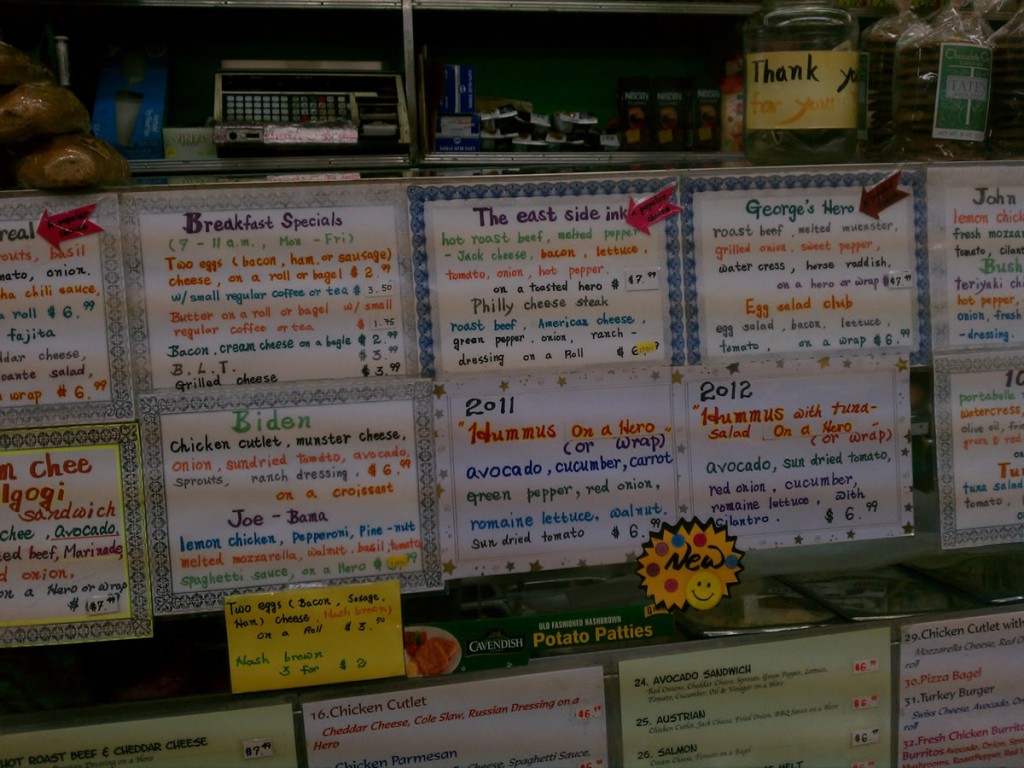 Thank
TATE'S
real
onion.
chili sauce,
a roll $6.99
fajita
cheese,
salad,
wrap $6.99
Breakfast Specials
(7 - 11 a.m., Mon - Fri)
Two eggs (bacon, ham, or sausage)
cheese, on a roll or bagel $2.99
w/small regular coffee or tea $3.50
Butter on a roll or bagel w/ small
regular coffee or tea $1.75
Bacon, cream cheese on a bagle $2.99
B.L.T. $3.99
Grilled cheese $3.99
The east side ink
hot roast beef, melted pepper
- Jack cheese, bacon, lettuce,
tomato, onion, hot pepper.
on a toasted hero $7.99
Philly cheese steak
roast beef, American cheese,
green pepper, onion, ranch -
dressing on a Roll
George's Hero
roast beef, melted muenster,
grilled onion, sweet pepper,
water cress, horse raddish,
on a hero or wrap $7.99
Egg salad club
egg salad, bacon, lettuce,
tomato, on a wrap $6.99
John
lemon chicken
fresh mozza
tomato,
Bush
teriyaki
hot pepper,
onion, fresh
- dressing.
chee
sandwich
chee, Avocado,
beef, Marinade
onion,
on a Hero or wrap
$7.99
Biden
Chicken cutlet, munster cheese,
onion, sundried tomato, avocado,
sprouts, ranch dressing. $6.99
on a croissant
Joe - Bama
lemon chicken, Pepperoni, Pine-nut
melted mozzarella, walnut, basil, tomato
spaghetti sauce, on a Hero
2011
"Hummus On a Hero"
(or wrap)
avocado, cucumber, carrot
green pepper, red onion,
romaine lettuce, walnut.
Sun dried tomato $6.99
2012
"Hummus with tuna-
salad On a Hero"
(or wrap)
avocado, sun dried tomato,
red onion, cucumber,
romaine lettuce, with
cilantro. $6.99
10
portabella
watercress
olive oil,
tuna salad
tomato,
New
Two eggs (Bacon, Sausage,
Ham) Cheese, Hash brown)
on a Roll $3.50
Hash brown
3 for $2
CAVENDISH
OLD FASHIONED HASHBROWN
Potato Patties
HOT ROAST BEEF & CHEDDAR CHEESE
$7.99
16. Chicken Cutlet
Cheddar Cheese, Cole Slaw, Russian Dressing on a
Hero
Chicken Parmesan
Cheese, Spaghetti Sauce,
24. AVOCADO SANDWICH
25. AUSTRIAN
26. SALMON
29. Chicken Cutlet with
Mozzarella Cheese, Red
roll
30. Pizza Bagel
31. Turkey Burger
Swiss Cheese, Avocado,
roll
32. Fresh Chicken Burrito
Burritos